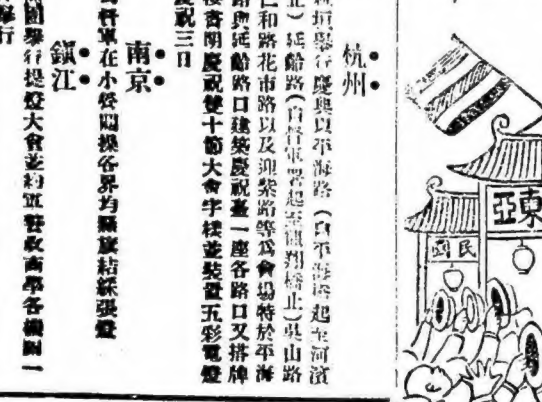 杭州
垣舉行慶典以平海路(自平海橋起至河濱
止)延齡路(自督軍署起至鳳翔橋止)吳山路
仁和路花市路以及迎紫路等爲會場特於平海
路與延齡路口建築慶祝臺一座各路口又搭牌
樓書明慶祝雙十節大會字樣並裝置五彩電燈
慶祝三日
南京
軍在小營閱操各界均懸旗結綵張燈
鎮江
舉行提燈大會並約軍警政商學各機關一
舉行
東亞
民國